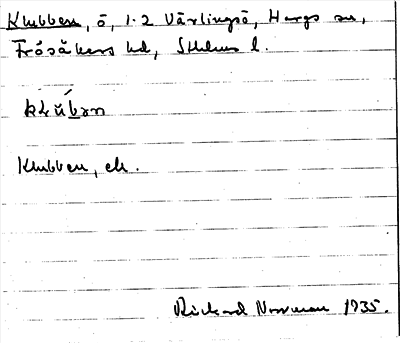 Klubben, ö, 1·2 Värlingsö, Hargs sn,
Frösåkers hd, Sthlms l.
klúban
Klubben, ek.
Rickard Norrman 1935.